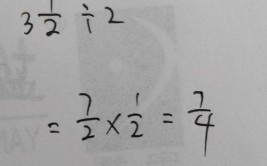 3 1/2 ÷ 2
= 7/2 × 1/2 = 7/4